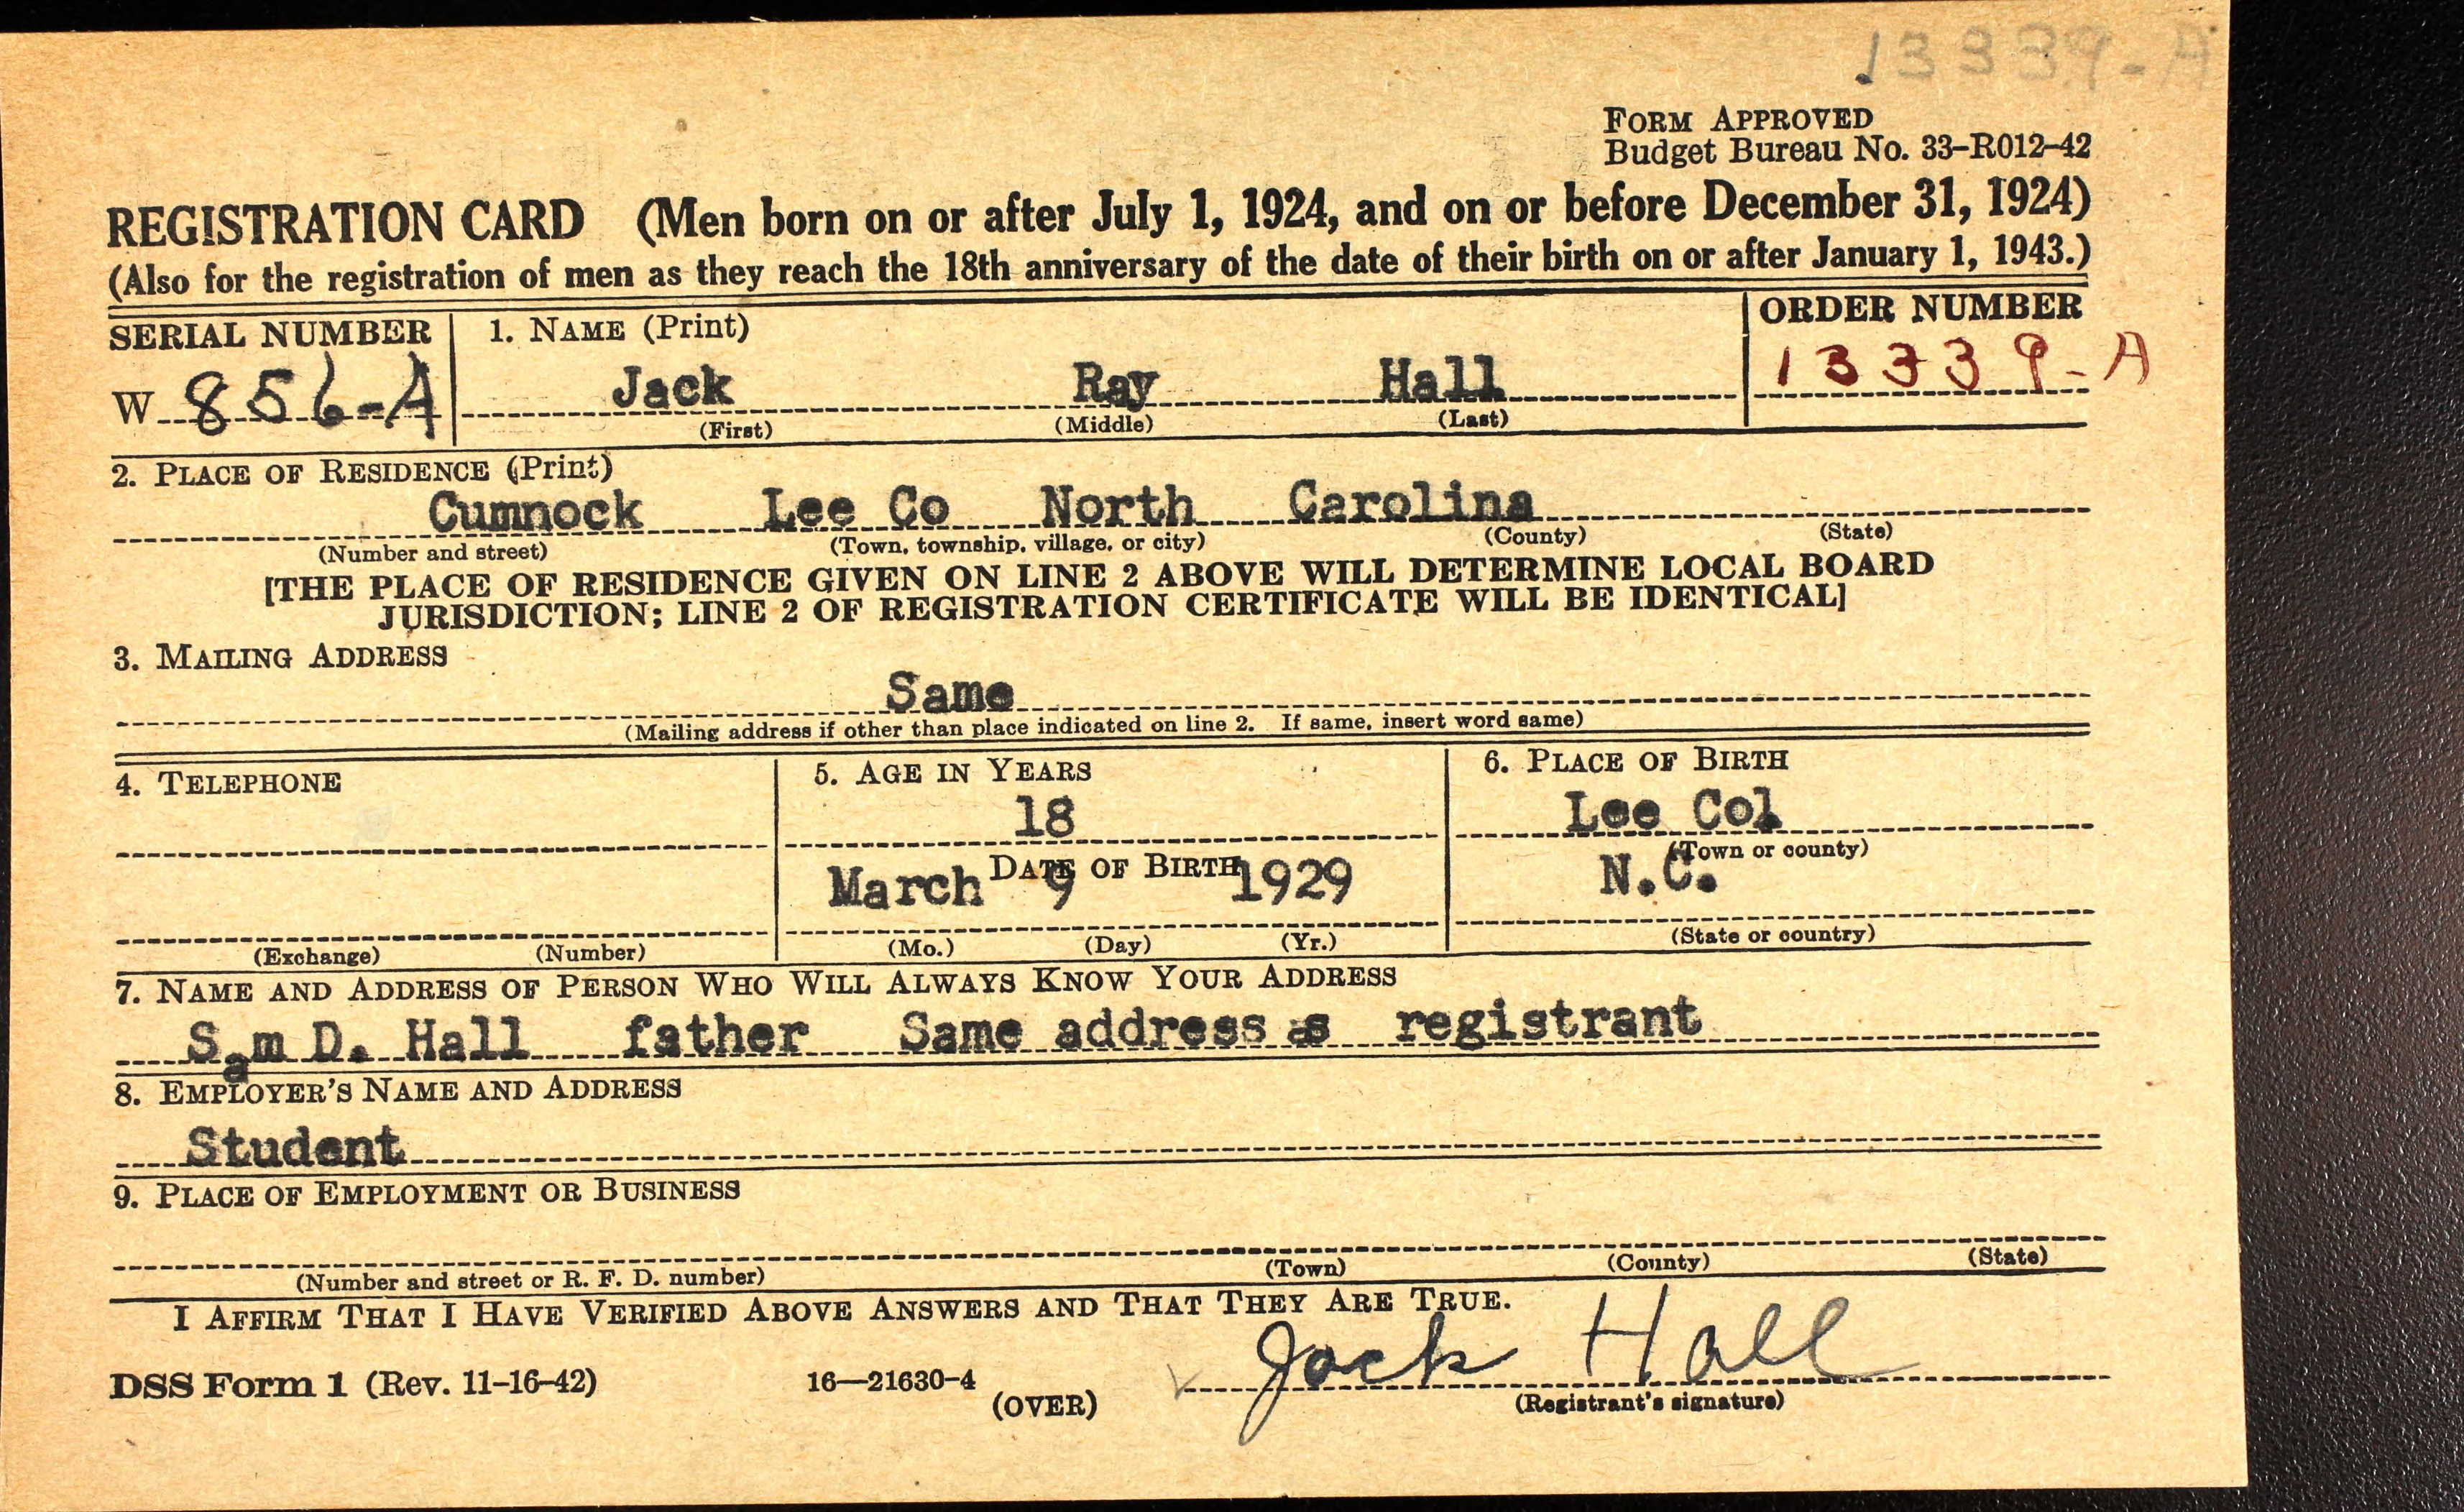 13339-A
FORM APPROVED
Budget Bureau No. 33-R012-42
REGISTRATION CARD (Men born on or after July 1, 1924, and on or before December 31, 1924)
(Also for the registration of men as they reach the 18th anniversary of the date of their birth on or after January 1, 1943.)
SERIAL NUMBER 1. NAME (Print) ORDER NUMBER
W 856-A Jack Ray Hall 13339-A
(First) (Middle) (Last)
2. PLACE OF RESIDENCE (Print)
Cumnock Lee Co North Carolina
(Number and street) (Town, township, village, or city) (County) (State)
[THE PLACE OF RESIDENCE GIVEN ON LINE 2 ABOVE WILL DETERMINE LOCAL BOARD
JURISDICTION; LINE 2 OF REGISTRATION CERTIFICATE WILL BE IDENTICAL]
3. MAILING ADDRESS
Same
(Mailing address if other than place indicated on line 2. If same, insert word same)
4. TELEPHONE 5. AGE IN YEARS 6. PLACE OF BIRTH
18 Lee Col
(Town or county)
DATE OF BIRTH
March 9 1929 N.C.
(Exchange) (Number) (Mo.) (Day) (Yr.) (State or country)
7. NAME AND ADDRESS OF PERSON WHO WILL ALWAYS KNOW YOUR ADDRESS
Sam D. Hall father Same address as registrant
8. EMPLOYER'S NAME AND ADDRESS
Student
9. PLACE OF EMPLOYMENT OR BUSINESS
(Number and street or R. F. D. number) (Town) (County) (State)
I AFFIRM THAT I HAVE VERIFIED ABOVE ANSWERS AND THAT THEY ARE TRUE.
Jack Hall
DSS Form 1 (Rev. 11-16-42) 16—21630-4 (OVER) (Registrant's signature)